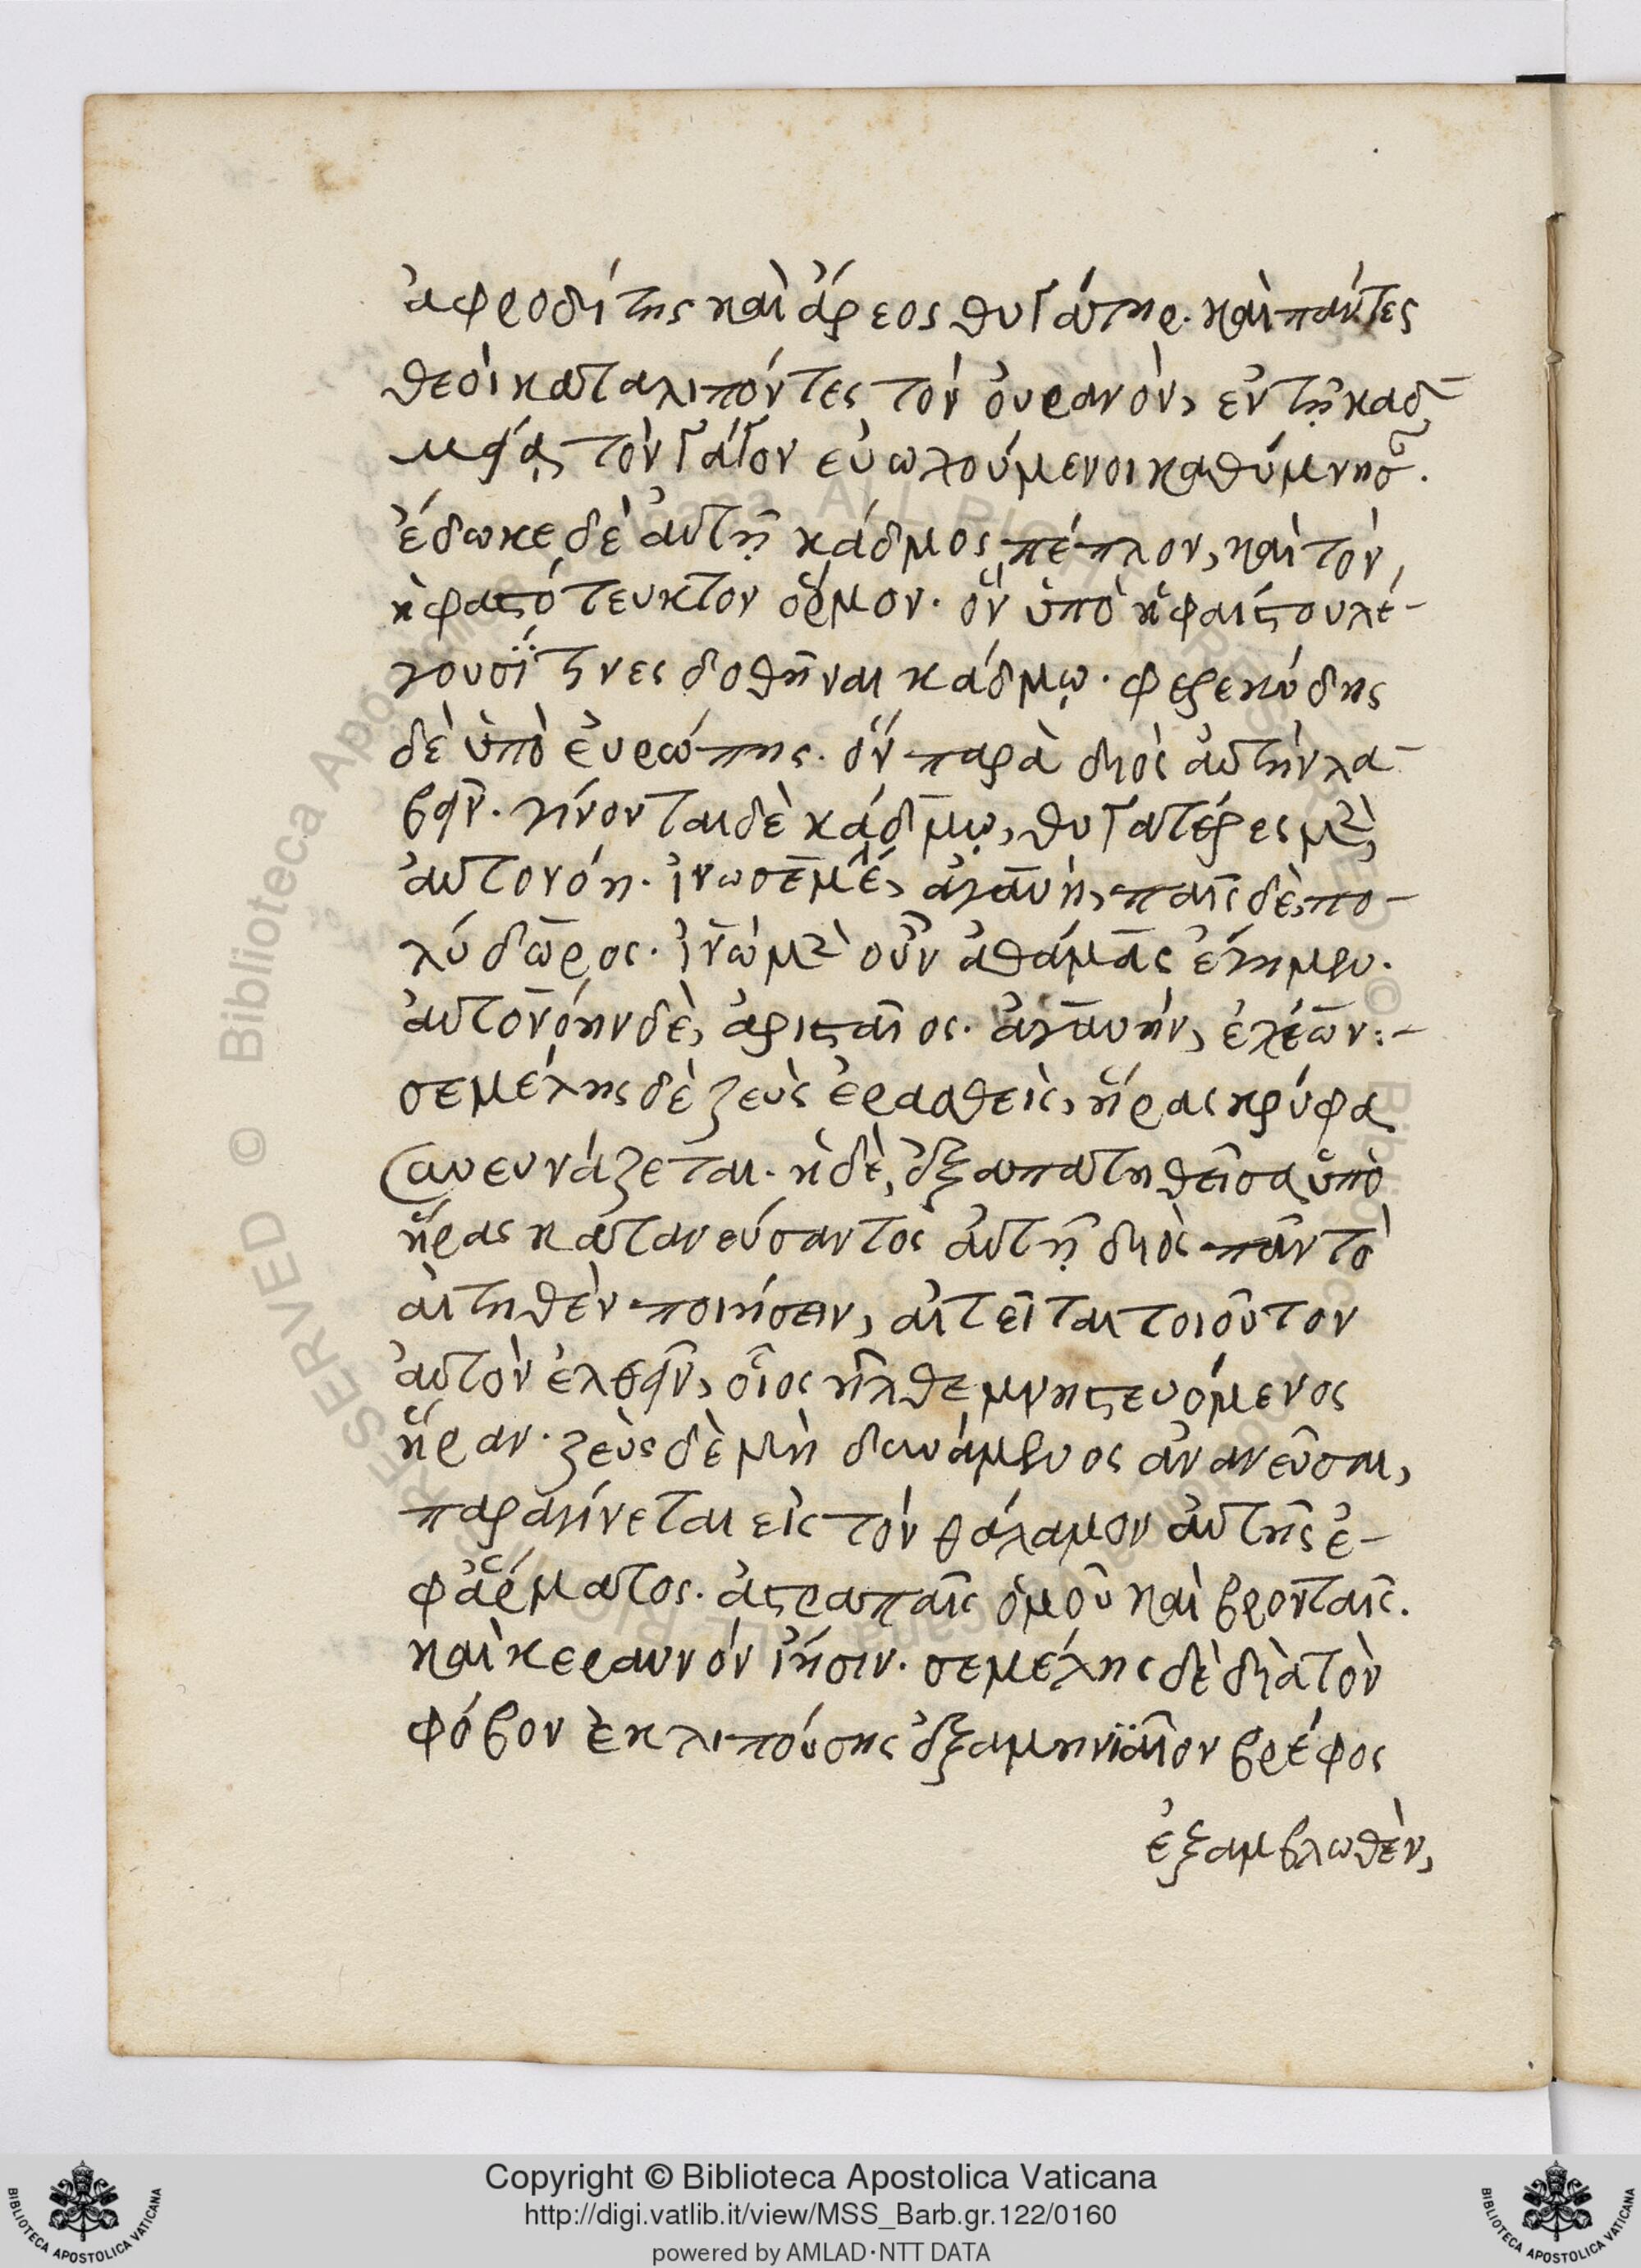 ἀφροδίτης καὶ ἄρεος θυγάτηρ. καὶ πάντες
θεοὶ καταλιπόντες τὸν ὀυρανὸν, ἐν τῇ καδ
μείᾳ τὸν γάγον εὐωχούμενοι καθύμνησ.
ἔδωκε δὲ ἀυτῇ κάδμος πέπλον, καὶ τὸν
ἡφαιστότευκτον ὅρμον. ὃν ὑπὸ ἡφαίστου λέ-
γουσί τινες δοθῆναι κάδμῳ. φερεκύδης
δὲ ὑπὸ ἐυρώπης. ὃν παρὰ διὸς ἀυτὴν λα-
βεῖν. γίνονται δὲ κάδμῳ, θυγατέρες μὲν,
ἀυτονόη. ἰνὼ σεμέλ, ἀγαυὴ, παῖς δὲ, πο-
λύδωρος. ἰνὼ μὲν οὖν ἀθάμας ἔγημεν.
ἀυτονόην δὲ, ἀρισταῖος. ἀγαυὴν, ἐχίων:-
σεμέλης δὲ ζεὺς ἐρασθεὶς, ἥρας κρύφα
συνευνάζεται. ἡ δὲ, ἐξαπατηθεῖσα ὑπὸ
ἥρας κατανεύσαντος ἀυτῇ διὸς πᾶν τὸ
αἰτηθὲν ποιήσειν, αἰτεῖται τοιοῦτον
ἀυτὸν ἐλθεῖν, οἷος ἦλθε μνηστευόμενος
ἥραν. ζεὺς δὲ μὴ δυνάμενος ἀνανεῦσαι,
παραγίνεται εἰς τὸν θάλαμον ἀυτῆς ἐ-
φ ἅρματος. ἀστραπαῖς ὁμοῦ καὶ βρονταῖς.
καὶ κεραυνὸν ἵησιν. σεμέλης δὲ διὰ τὸν
φόβον ἐκλιπούσης ἐξαμηνϊαῖον βρέφος
ἐξαμβλωθὲν,
Copyright © Biblioteca Apostolica Vaticana
http://digi.vatlib.it/view/MSS_Barb.gr.122/0160
powered by AMLAD·NTT DATA